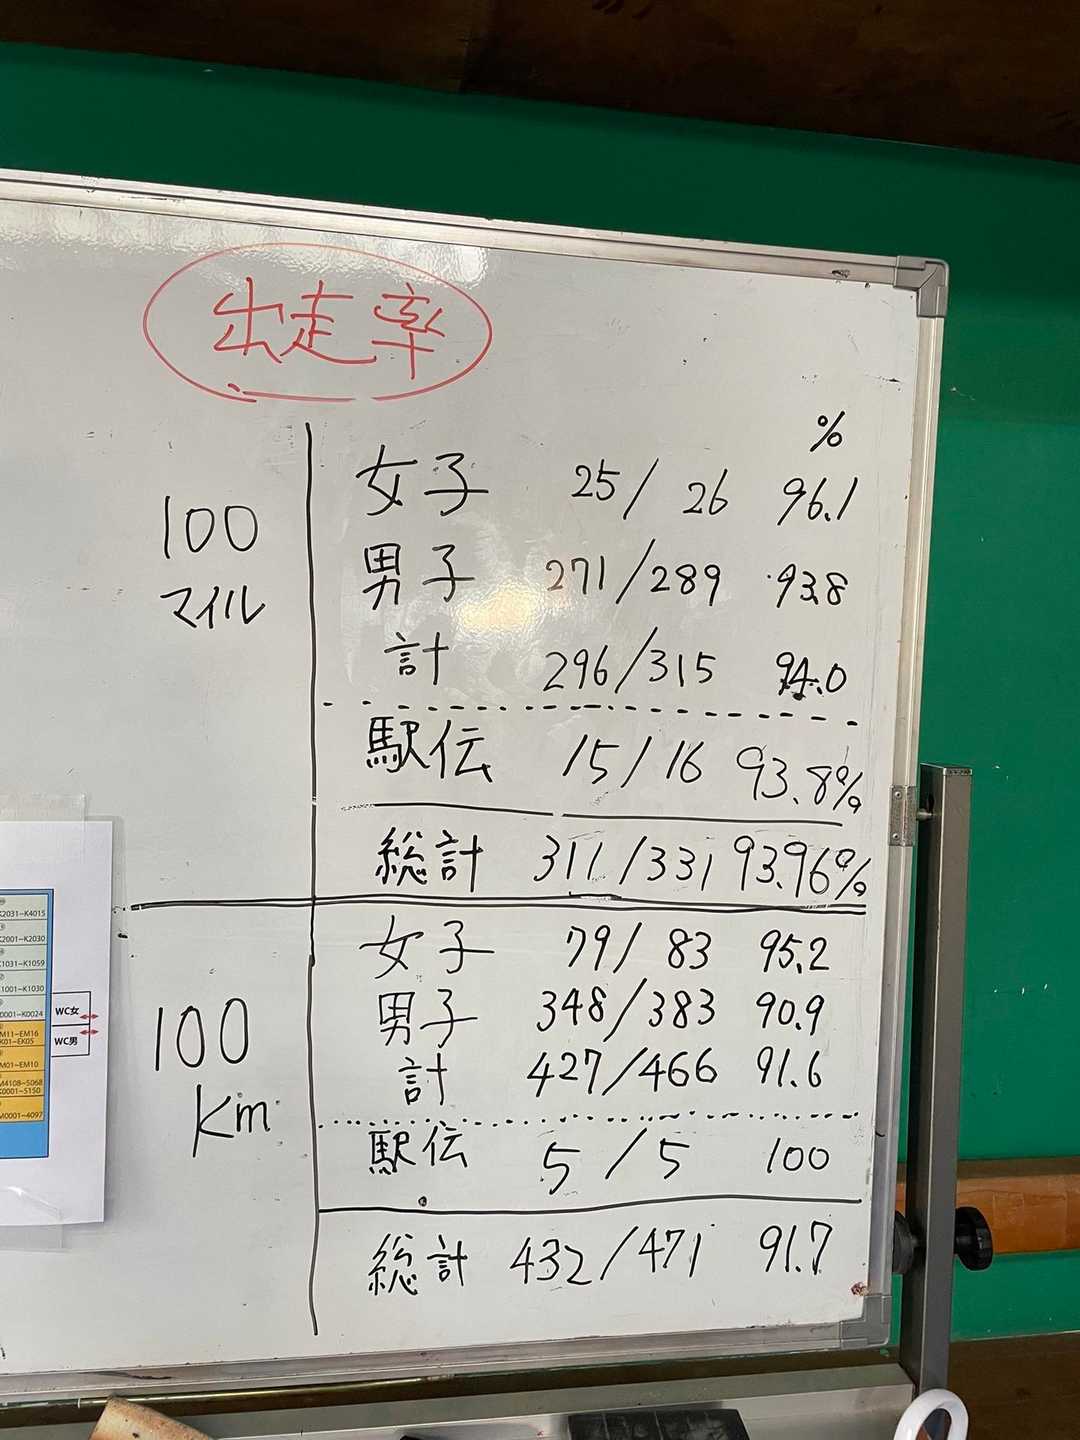 出走率
%
100
マイル
女子 25/26 96.1
男子 271/289 93.8
計 296/315 94.0
駅伝 15/16 93.8%
総計 311/331 93.96%
100
Km
女子 79/83 95.2
男子 348/383 90.9
計 427/466 91.6
駅伝 5/5 100
総計 432/471 91.7
K2031~K4015
K2001~K2030
K1031~K1059
K1001~K1030
K0001~K0024
EM11~EM16
EK01~EK05
EM01~EM10
M4108~5068
K0001~5150
M0001~4097
WC女
WC男